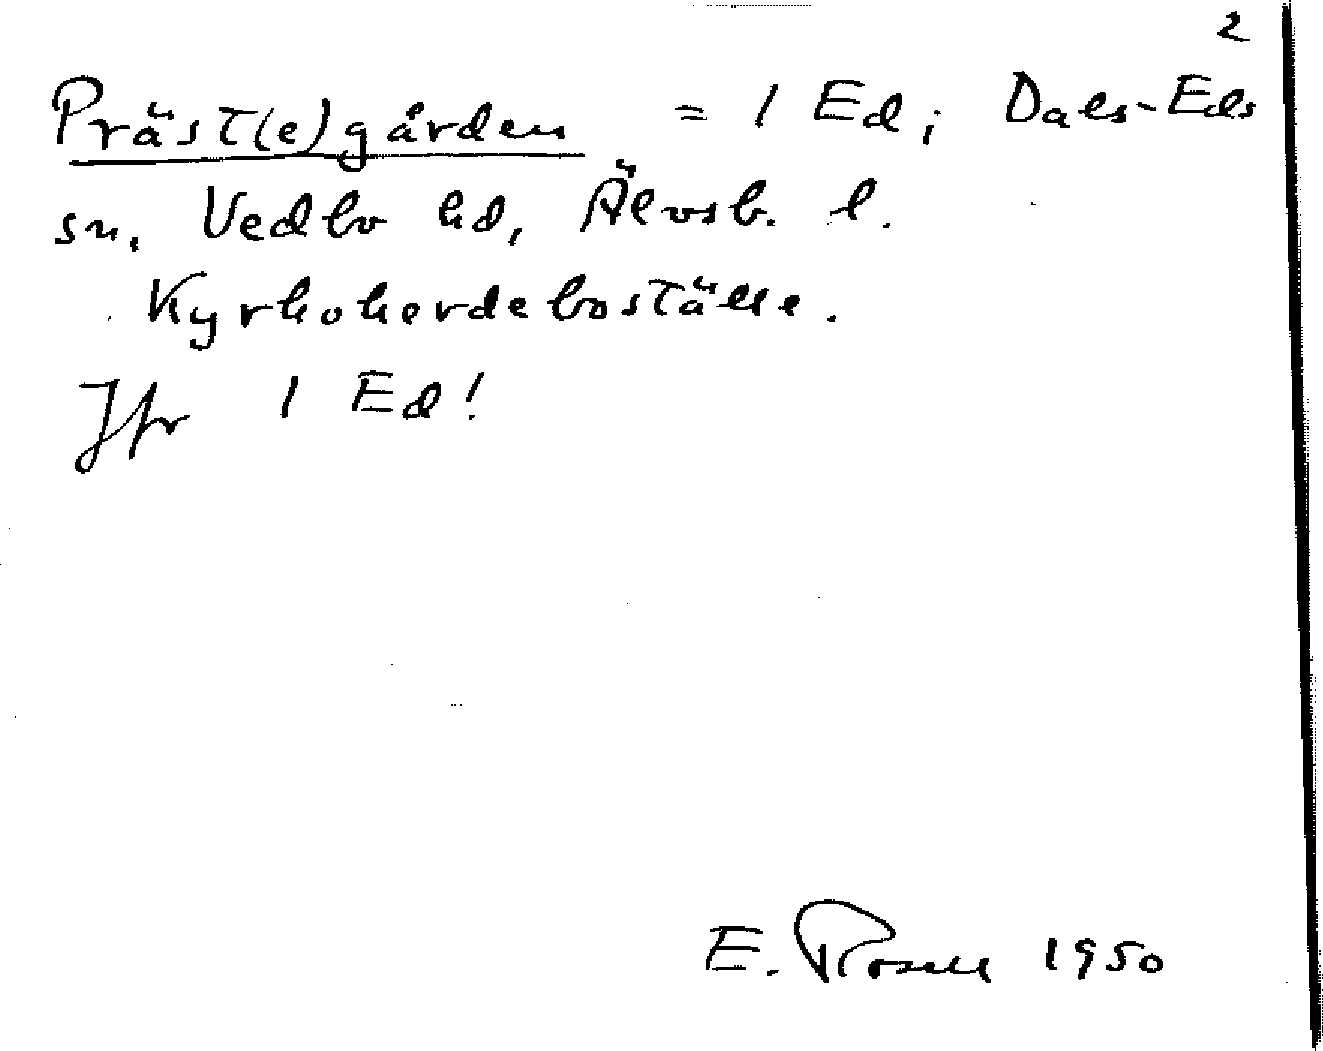 2
Präst(e)gården = 1 Ed, Dals-Eds
sn, Vedbo hd, Älvsb. l.
Kyrkoherdeboställe.
Jfr 1 Ed!
E. Rosell 1950